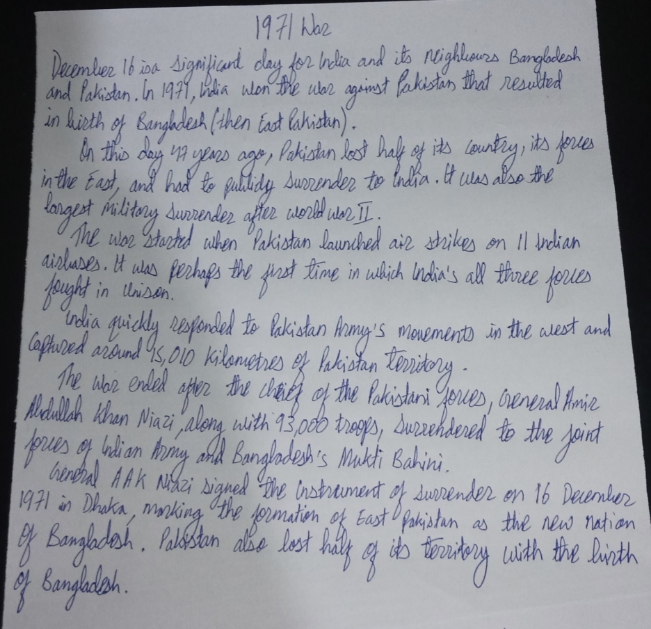 1971 War
December 16 is a significant day for India and its neighbours Bangladesh
and Pakistan. In 1971, India won the war against Pakistan that resulted
in birth of Bangladesh (then East Pakistan).
On this day 47 years ago, Pakistan lost half of its country, its forces
in the East, and had to publicly surrender to India. It was also the
largest military surrender after world war II.
The war started when Pakistan launched air strikes on 11 Indian
airbases. It was perhaps the first time in which India's all three forces
fought in unison.
India quickly responded to Pakistan Army's movements in the west and
captured around 15,010 kilometres of Pakistan territory.
The war ended after the chief of the Pakistani forces, General Amir
Abdullah Khan Niazi, along with 93,000 troops, surrendered to the joint
forces of Indian Army and Bangladesh's Mukti Bahini.
General AAK Niazi signed the Instrument of surrender on 16 December
1971 in Dhaka, marking the formation of East Pakistan as the new nation
of Bangladesh. Pakistan also lost half of its territory with the birth
of Bangladesh.